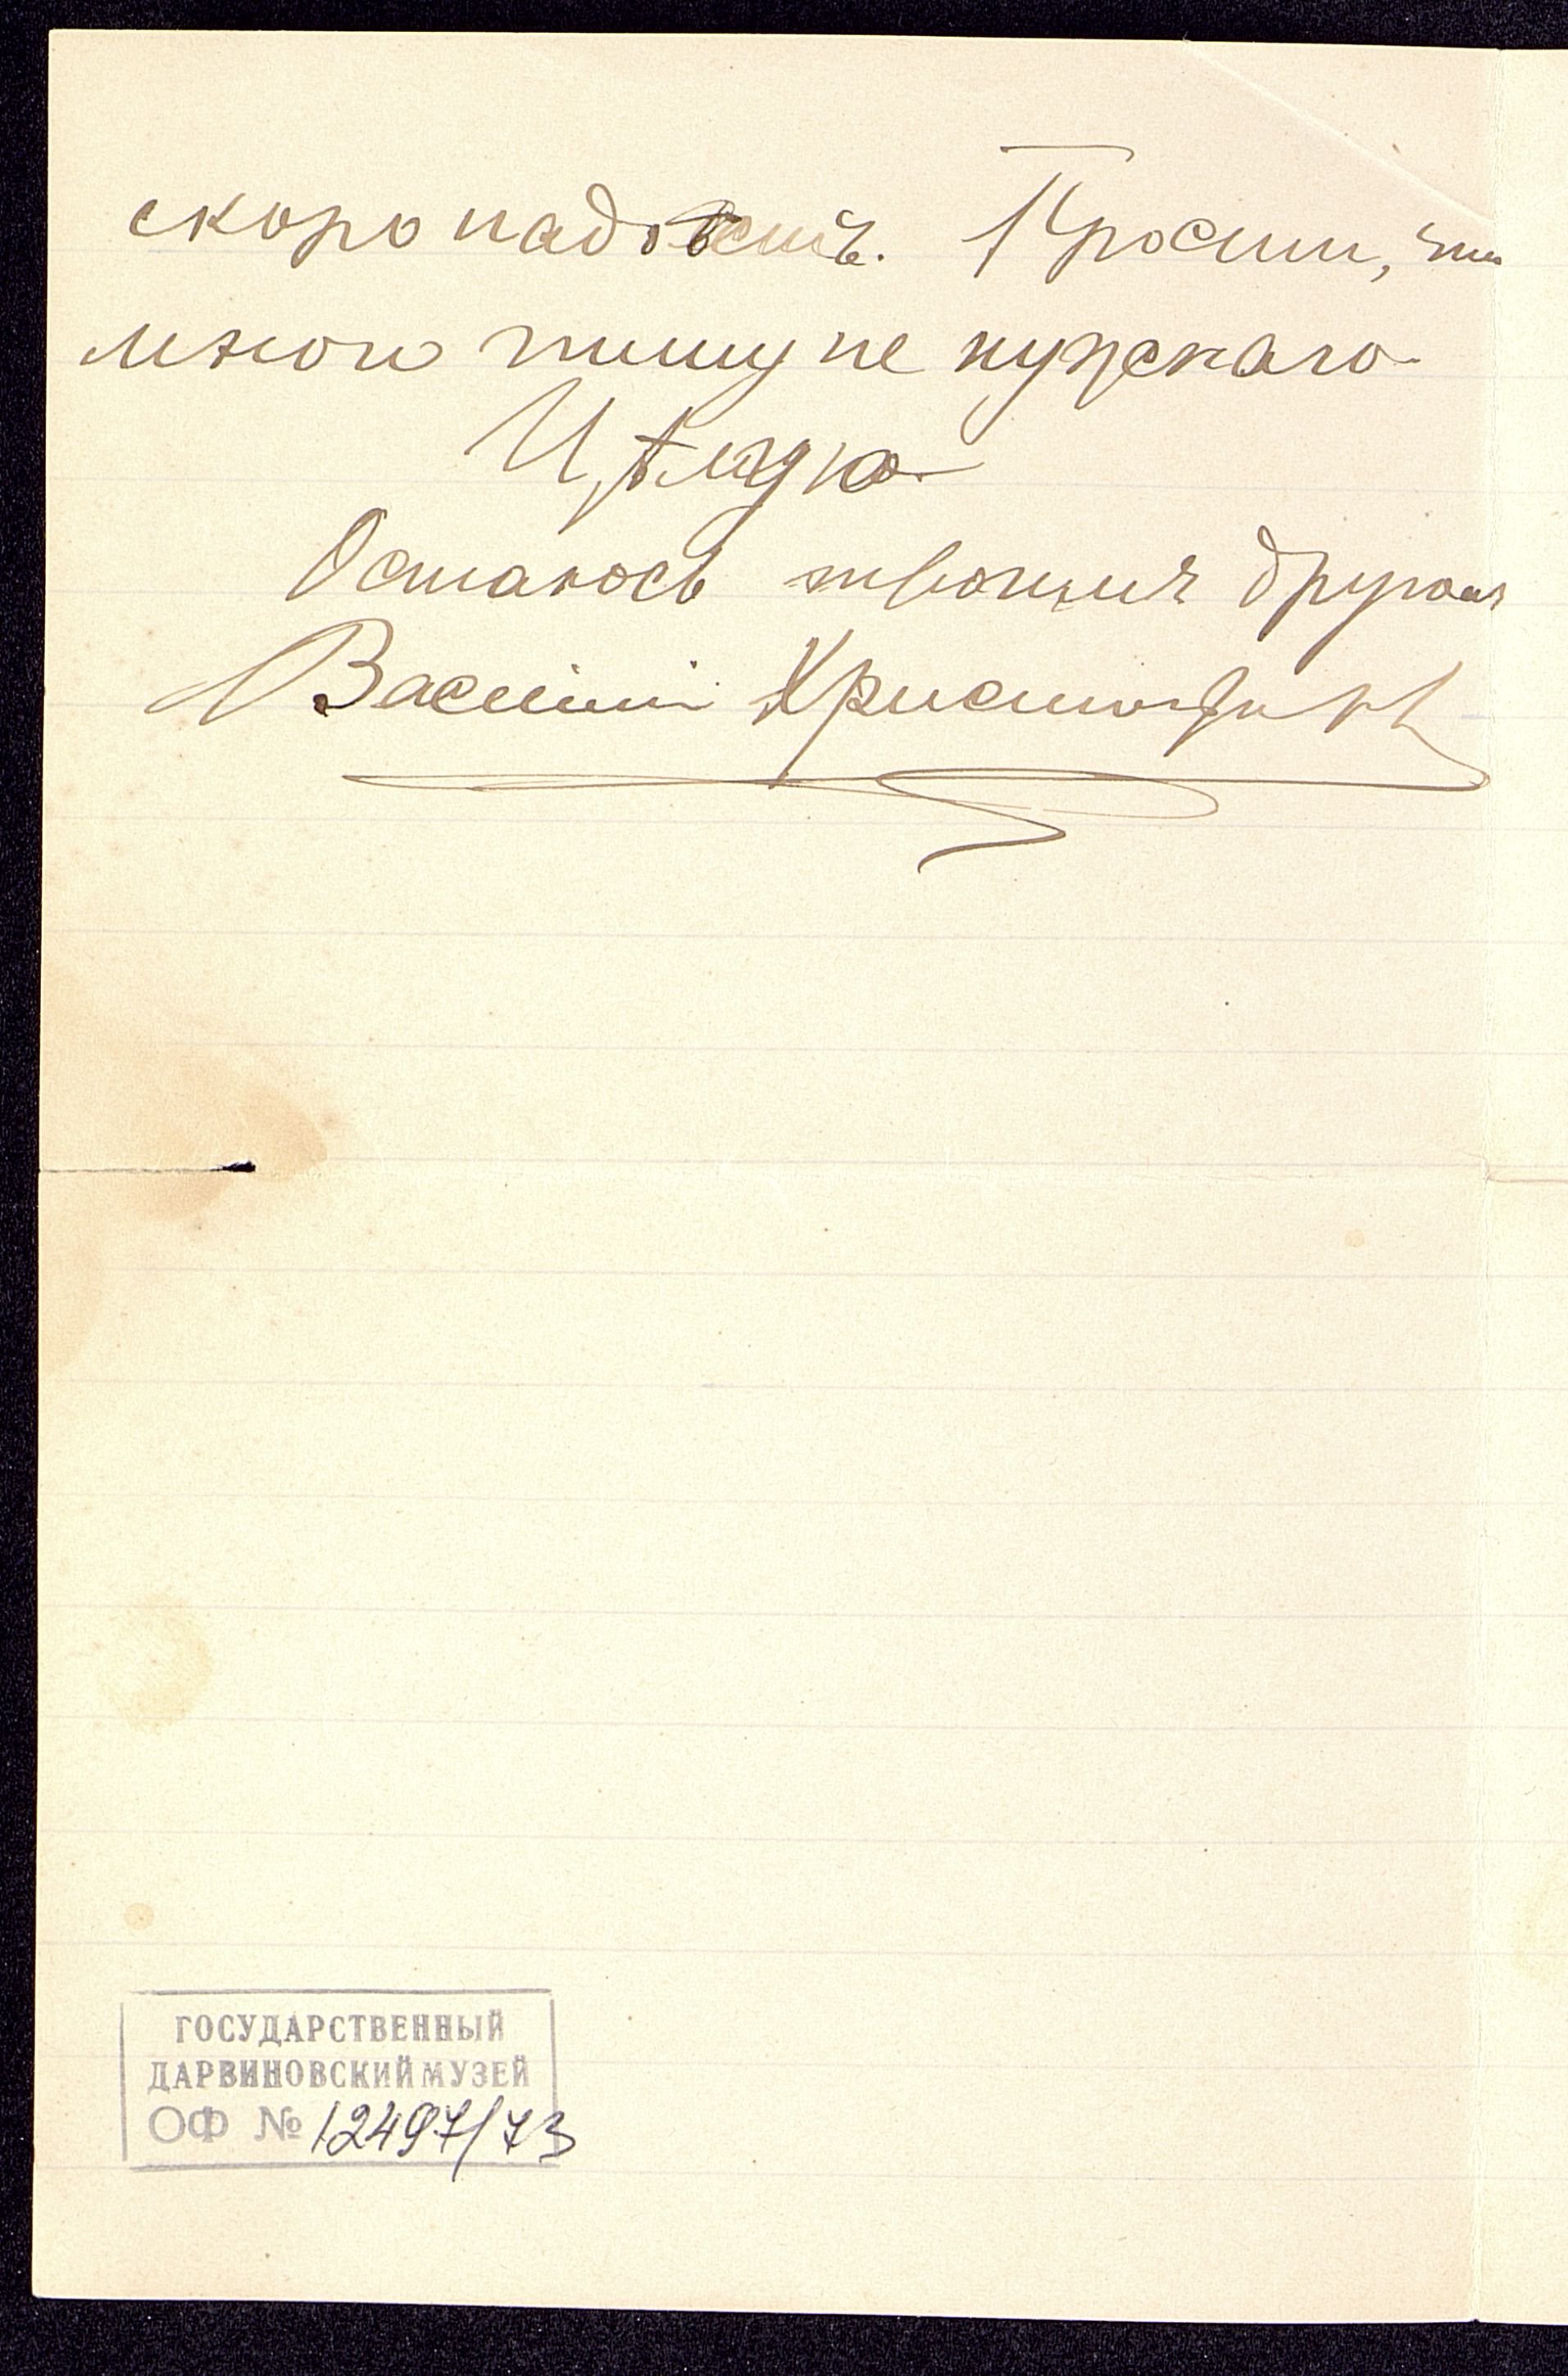 скоро надоѣстъ. Прости, что
много пишу не нужнаго
Цѣлую
Остаюсь твоимъ другомъ
Василій Христофоръ
ГОСУДАРСТВЕННЫЙ
ДАРВИНОВСКИЙ МУЗЕЙ
ОФ № 12497/73